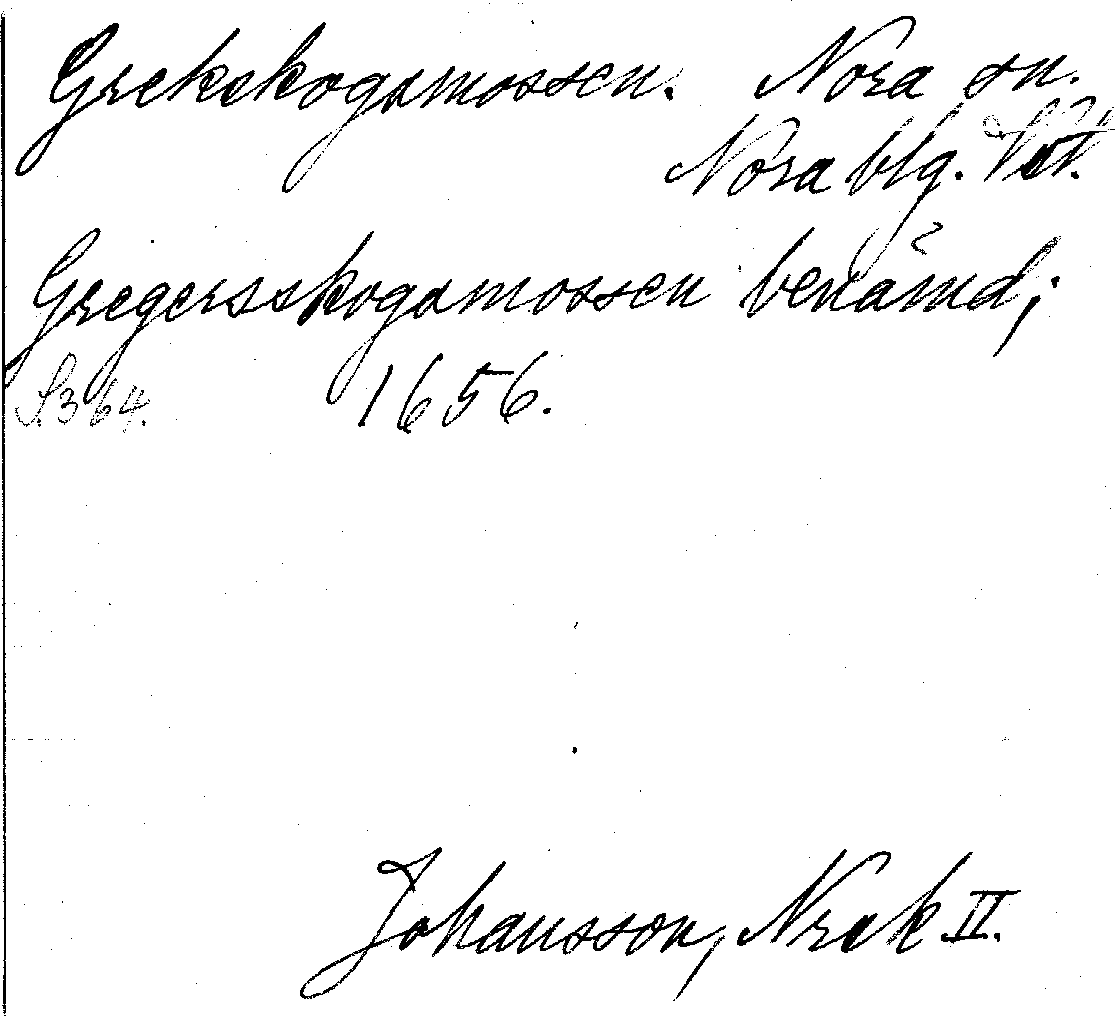 Grekskogsmossen. Nora sn.
Nora blg. Vstm.
Gregersskogsmossen benämd;
S.364. 1656.
Johansson, Nrak II.